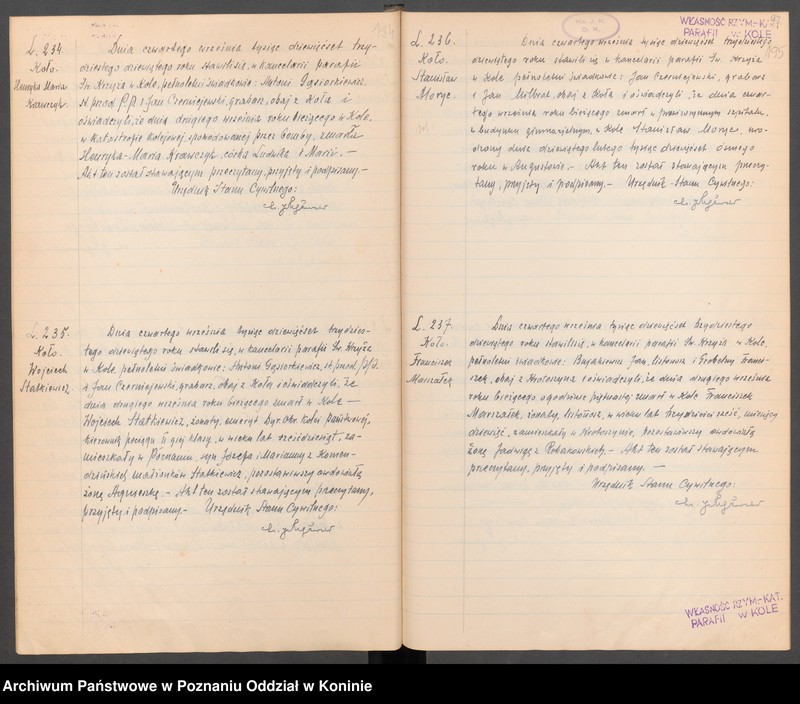 L. 234.
Koło.
Henryka Maria
Krawczyk.
Dnia czwartego września tysiąc dziewięćset trzy-
dziestego dziewiątego roku stawili się, w kancelarii parafii
Św. Krzyża w Kole, pełnoletni świadkowie: Antoni Gąsiorkiewicz,
st. przod. P.P. i Jan Czerniejewski, grabarz, obaj z Koła i
oświadczyli, że dnia drugiego września roku bieżącego w Kole,
w katastrofie kolejowej, spowodowanej przez bomby, zmarła
Henryka-Maria Krawczyk, córka Ludwika i Marii. —
Akt ten został stawającym przeczytany, przyjęty i podpisany. —
Urzędnik Stanu Cywilnego:
L. 235.
Koło.
Wojciech
Statkiewicz
Dnia czwartego września tysiąc dziewięćset trzydzies-
tego dziewiątego roku stawili się, w kancelarii parafii Św. Krzyża
w Kole pełnoletni świadkowie: Antoni Gąsiorkiewicz, st. przod. P.P.
i Jan Czerniejewski, grabarz, obaj z Koła i oświadczyli, że
dnia drugiego września roku bieżącego zmarł w Kole —
Wojciech Statkiewicz, żonaty, emeryt Dyr. Okr. Kolei Państwowej,
kierownik pociągu II giej klasy, w wieku lat sześćdziesiąt, za-
mieszkały w Poznaniu, syn Józefa i Marianny z
małżonków Statkiewicz, pozostawiwszy owdowiałą
żonę Agnieszkę. — Akt ten został stawającym przeczytany,
przyjęty i podpisany. — Urzędnik Stanu Cywilnego:
WŁASNOŚĆ RZYM.-KAT.
PARAFII W KOLE
L. 236.
Koło.
Stanisław
Moryc.
Dnia czwartego września tysiąc dziewięćset trzydziestego
dziewiątego roku stawili się w kancelarii parafii Św. Krzyża
w Kole pełnoletni świadkowie: Jan Czerniejewski, grabarz
i Jan Milbrat, obaj z Koła i oświadczyli, że dnia czwar-
tego września roku bieżącego zmarł w prowizorycznym szpitalu,
w budynku gimnazjalnym, w Kole Stanisław Moryc, uro-
dzony dnia dziewiątego lutego tysiąc dziewięćset ósmego
roku w Augustowie. — Akt ten został stawającym przeczy-
tany, przyjęty i podpisany. — Urzędnik Stanu Cywilnego:
L. 237.
Koło.
Franciszek
Marszałek
Dnia czwartego września tysiąc dziewięćset trzydziestego
dziewiątego roku stawili się, w kancelarii parafii Św. Krzyża w Kole,
pełnoletni świadkowie: Jan, listonosz i Franci-
szek, obaj z Krotoszyna i oświadczyli, że dnia drugiego września
roku bieżącego o godzinie piętnastej zmarł w Kole Franciszek
Marszałek, żonaty, listonosz, w wieku lat trzydzieści sześć, miesięcy
dziewięć, zamieszkały w Krotoszynie, pozostawiwszy owdowiałą
żonę Jadwigę z Robakowskich. — Akt ten został stawającym
przeczytany, przyjęty i podpisany. —
Urzędnik Stanu Cywilnego:
WŁASNOŚĆ RZYM.-KAT.
PARAFII W KOLE
Archiwum Państwowe w Poznaniu Oddział w Koninie